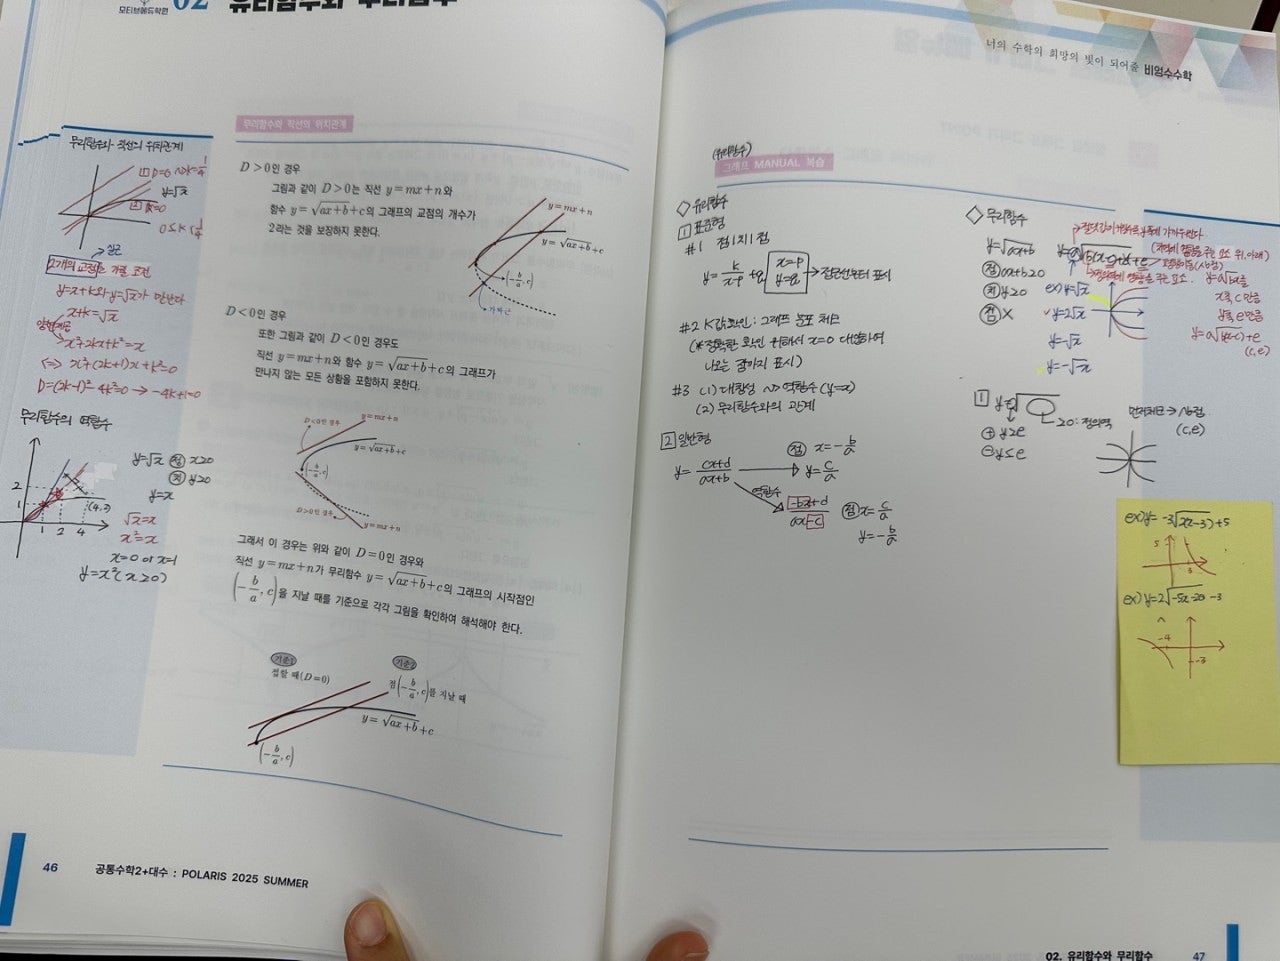 모티브에듀학원
02 유리함수와 무리함수
무리함수와 직선의 위치관계
1 D=0 ~> k=1/4
y=√x
2 k=0
0≤k<1/4
실근
2개의 교점을 가질 조건
y=x+k와 y=√x가 만난다
x+k=√x
양변제곱
x²+2kx+k²=x
<=> x²+(2k-1)x+k²=0
D=(2k-1)²-4k²=0 → -4k+1=0
무리함수의 역함수
y=√x 정 x≥0
치 y≥0
y=x
√x=x
x²=x
x=0 or x=1
y=x²(x≥0)
2
1
(4,2)
1 2 4
무리함수와 직선의 위치관계
D>0인 경우
그림과 같이 D>0는 직선 y=mx+n와
함수 y=√(ax+b)+c의 그래프의 교점의 개수가
2라는 것을 보장하지 못한다.
y=mx+n
y=√(ax+b)+c
(-b/a, c)
D<0인 경우
또한 그림과 같이 D<0인 경우도
직선 y=mx+n와 함수 y=√(ax+b)+c의 그래프가
만나지 않는 모든 상황을 포함하지 못한다.
D<0인 경우
y=mx+n
y=√(ax+b)+c
(-b/a, c)
D>0인 경우
y=mx+n
그래서 이 경우는 위와 같이 D=0인 경우와
직선 y=mx+n가 무리함수 y=√(ax+b)+c의 그래프의 시작점인
(-b/a, c)을 지날 때를 기준으로 각각 그림을 확인하여 해석해야 한다.
기준1
접할 때(D=0)
기준2
점(-b/a, c)를 지날 때
y=√(ax+b)+c
(-b/a, c)
46
공통수학2+대수 : POLARIS 2025 SUMMER
너의 수학의 희망의 빛이 되어줄 비엄수수학
(유리함수)
그래프 MANUAL 복습
◇ 유리함수
1 표준형
#1 점|치|점
y=k/(x-p)+q
x=p
y=q
→ 점근선부터 표시
#2 K값확인: 그래프 분포 체크
(*정확한 확인 위해서 x=0 대입하여
나오는 값까지 표시)
#3 (1) 대칭성 ~> 역함수 (y=x)
(2) 무리함수와의 관계
2 일반형
y=(cx+d)/(ax+b)
점 x=-b/a
y=c/a
역함수
(-bx+d)/(ax-c)
점 x=c/a
y=-b/a
◇ 무리함수
y=√(ax+b)
정 ax+b≥0
치 y≥0
점 X
ex) y=√x
y=2√x
y=-√x
y=-√-x
y=a√bx를
x축 c만큼
y축 e만큼
y=a√(b(x-c))+e
(c,e)
1
≥0: 정의역
⊕ y≥e
⊖ y≤e
먼저체크 → 시점
(c,e)
ex) y=-3√(2(x-3))+5
5
3
ex) y=2√(-5x-20)-3
-4
-3
02. 유리함수와 무리함수
47